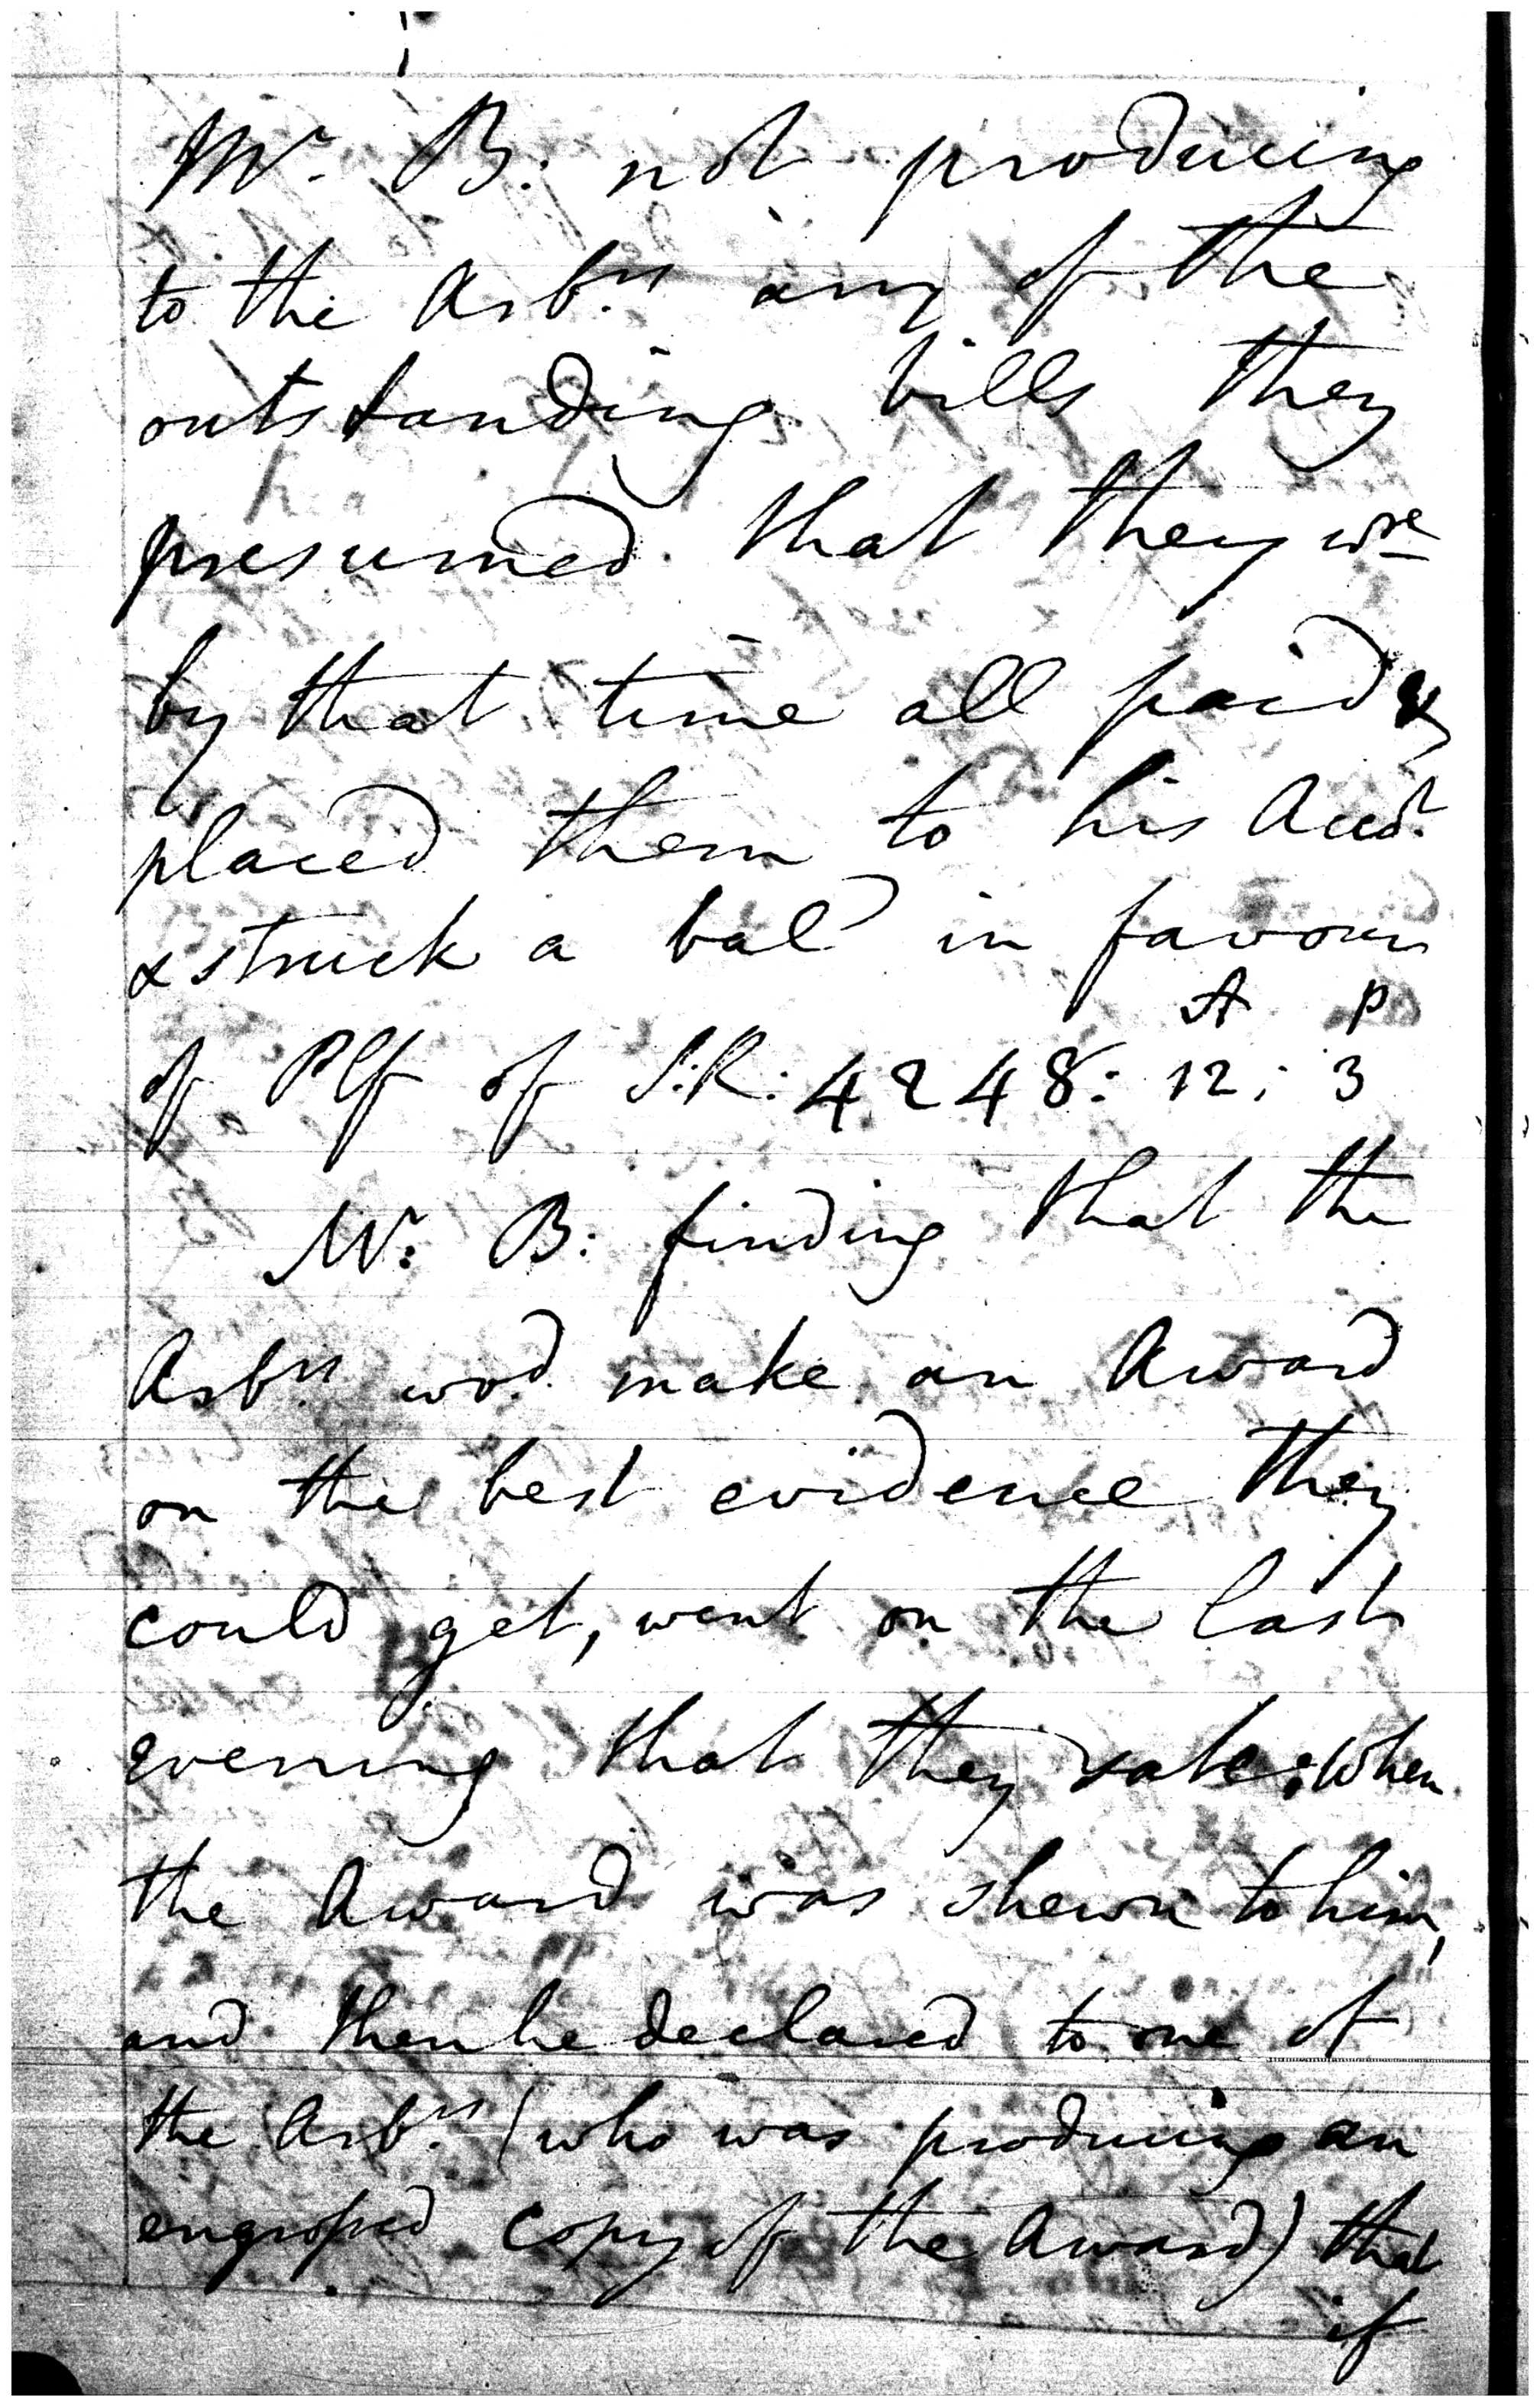 Mr. B: not producing
to the Arbrs. any of the
outstanding bills they
presumed that they wre
by that time all paid &
placed them to his Accot.
& struck a bal in favour
A P
of Plf of S:R: 4248: 12: 3
Mr: B: finding that the
Arbrs. wod. make an Award
on the best evidence they
could get, went on the last
evening that they sate: when
the Award was shewn to him,
and then he declared to one of
the Arbrs. (who was producing an
engrossed copy of the Award) that
if